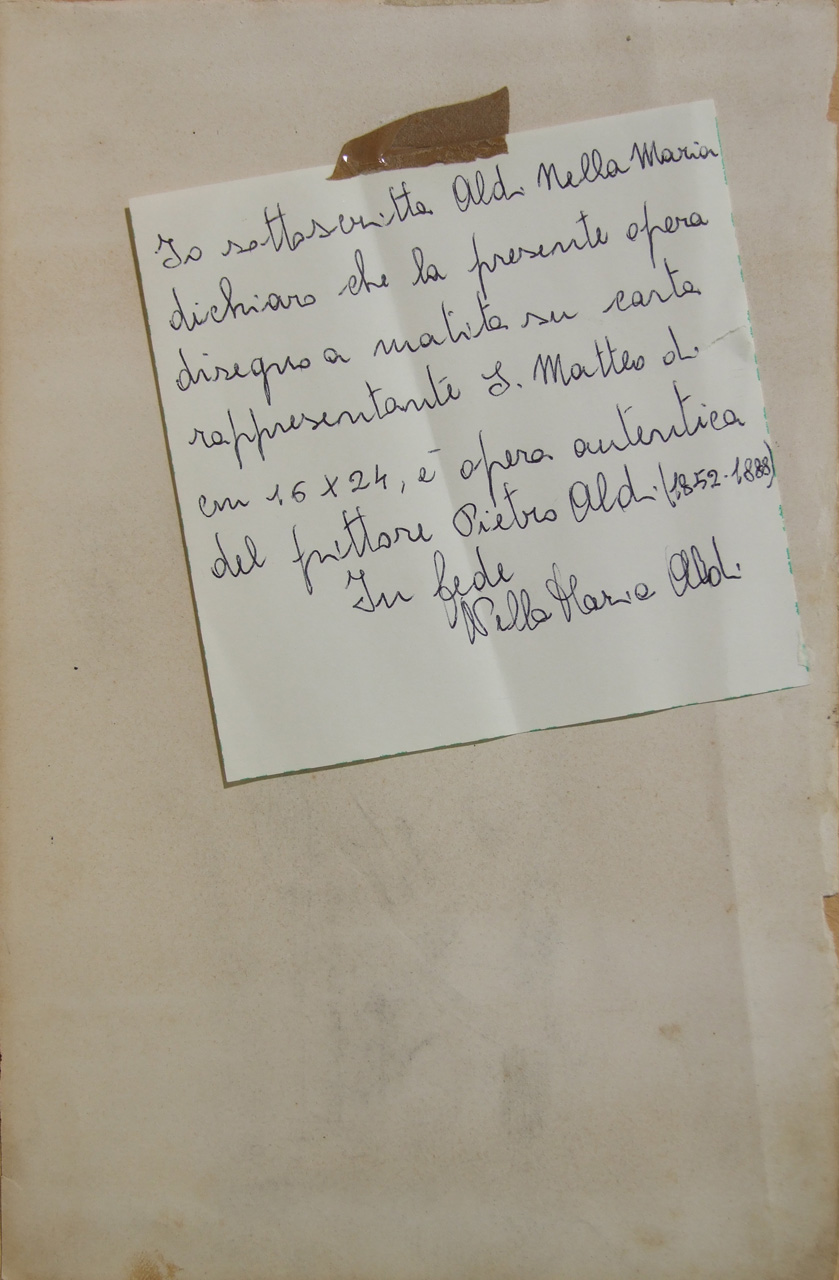 Io sottoscritta Aldi Nella Maria
dichiaro che la presente opera
disegno a matita su carta
rappresentante S. Matteo di
cm 16 x 24, è opera autentica
del pittore Pietro Aldi (1852-1888)
In fede
Nella Maria Aldi